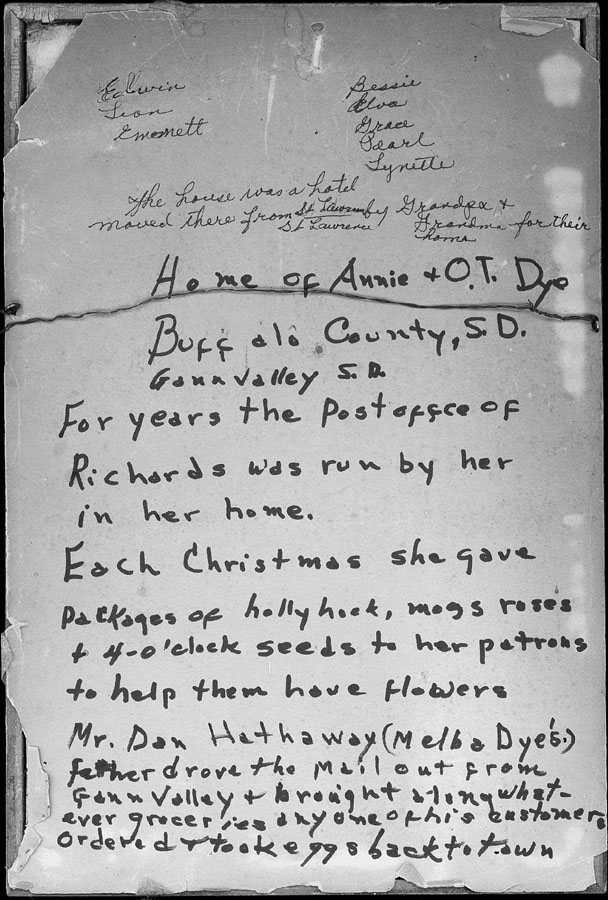 Edwin
Leon
Emmett
Bessie
Elva
Grace
Pearl
Lynette
The house was a hotel
moved there from St Lawrence by Grandpa +
St Lawrence
Grandma for their
home
Home of Annie + O.T. Dye
Buffalo County, S.D.
Gann Valley S.D.
For years the Postoffce of
Richards was run by her
in her home.
Each Christmas she gave
Packages of hollyhock, moss roses
+ 4-o'clock seeds to her patrons
to help them have flowers
Mr. Dan Hathaway (Melba Dye's.)
father drove the Mail out from
Gann Valley + brought along what-
ever groceries any one of his customers
Ordered + took eggs back to town